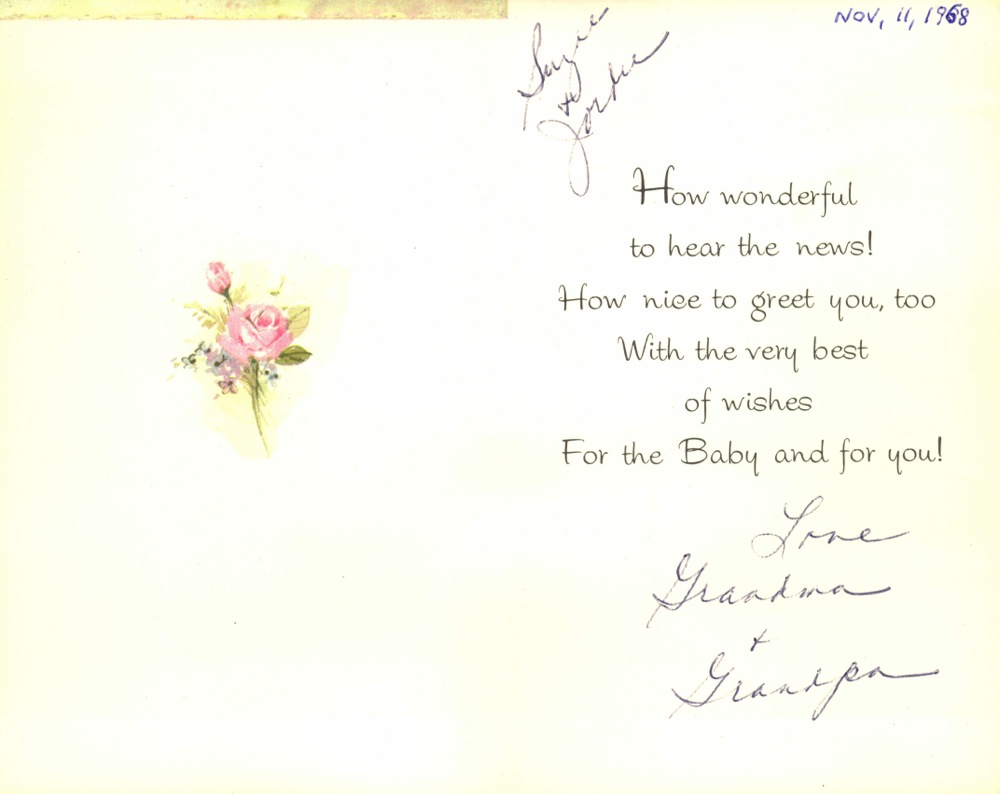 NOV, 11, 1968
Suzie
+
Jordie
How wonderful
to hear the news!
How nice to greet you, too
With the very best
of wishes
For the Baby and for you!
Love
Grandma
+
Grandpa